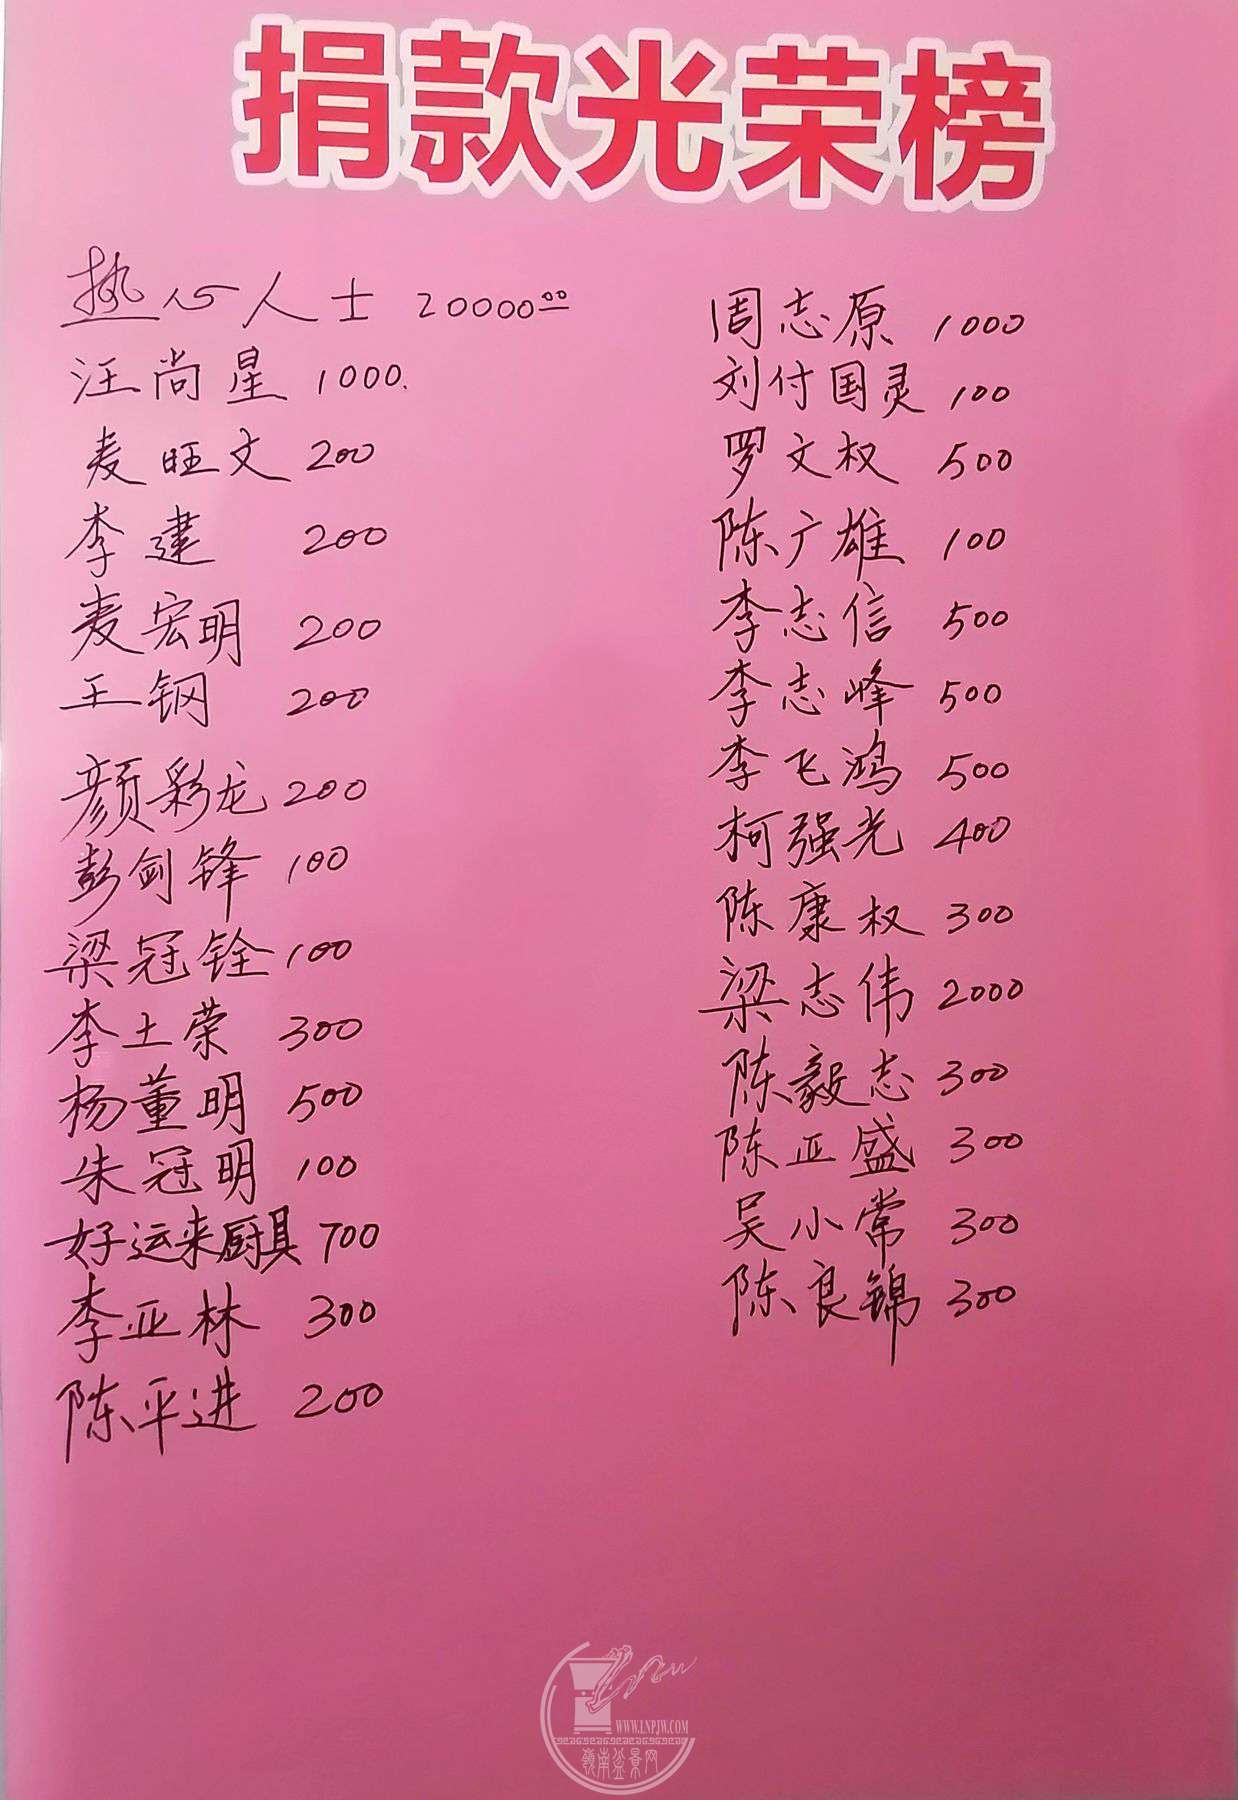 捐款光荣榜
热心人士 20000.00
汪尚星 1000.
麦旺文 200
李建 200
麦宏明 200
王钢 200
颜彩龙 200
彭剑锋 100
梁冠铨 100
李土荣 300
杨董明 500
朱冠明 100
好运来厨具 700
李亚林 300
陈平进 200
周志原 1000
刘付国灵 100
罗文权 500
陈广雄 100
李志信 500
李志峰 500
李飞鸿 500
柯强光 400
陈康权 300
梁志伟 2000
陈毅志 300
陈亚盛 300
吴小常 300
陈良锦 300
WWW.LNPJW.COM
嶺南盆景网